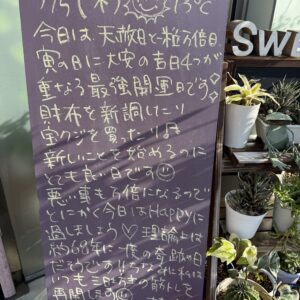 今日は天赦日と一粒万倍日
寅の日に大安の吉日4つが
重なる最強開運日です
財布を新調したり
宝クジを買ったり♬
新しいことを始めるのに
とても良い日です☺
悪い事も万倍になるので
とにかく今日はHappyに
過ごしましょう♡ 理論上は
約68年に一度の奇跡の日
再開
SWE